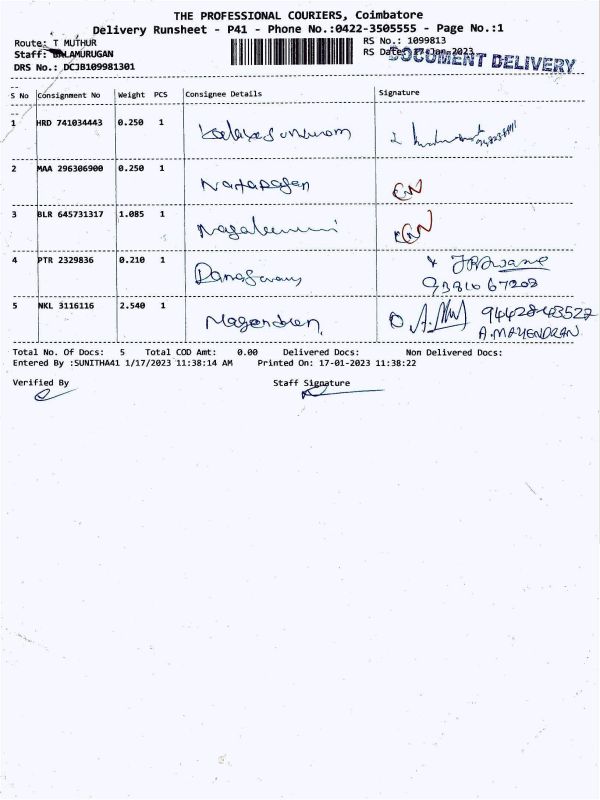 THE PROFESSIONAL COURIERS, Coimbatore
Delivery Runsheet - P41 - Phone No.:0422-3505555 - Page No.:1
Route: T MUTHUR
RS No.: 1099813
Staff: BALAMURUGAN
RS Date: 17-Jan-2023
DOCUMENT DELIVERY
DRS No.: DCJB109981301
S No Consignment No Weight PCS Consignee Details Signature
1 HRD 741034443 0.250 1
2 MAA 296306900 0.250 1 GN
3 BLR 645731317 1.085 1 GN
4 PTR 2329836 0.210 1
93810 67208
5 NKL 3116116 2.540 1 Magendran
A.MAHENDRAN
Total No. Of Docs: 5 Total COD Amt: 0.00 Delivered Docs: Non Delivered Docs:
Entered By :SUNITHA41 1/17/2023 11:38:14 AM Printed On: 17-01-2023 11:38:22
Verified By Staff Signature